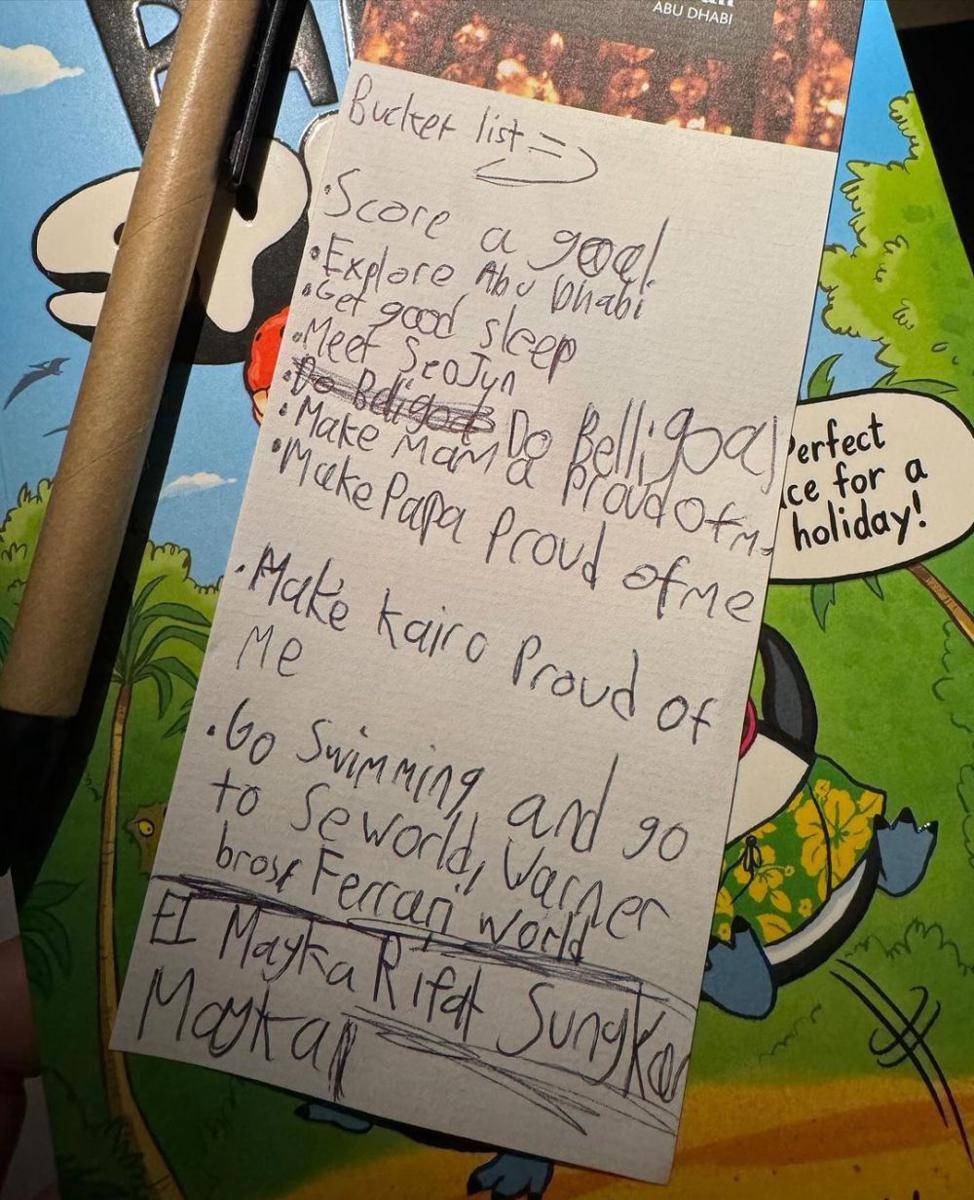 ABU DHABI
Bucket list =)
• Score a goal
• Explore Abu Dhabi
• Get good sleep
• Meet SeoJyn
• Do Belligoal
• Make Mama proud of me
• Make Papa Proud of me
• Make kairo Proud of
Me
• Go Swimming and go
to Seworld, Warner
bros, Ferrari world
El Mayka Rifat Sungkar
Mayka
Perfect
for a
holiday!